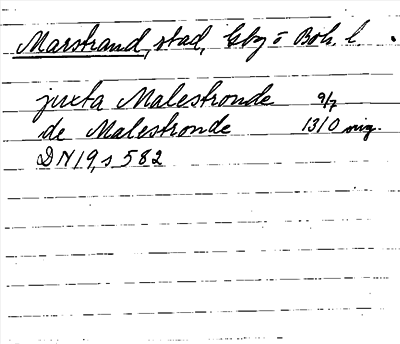 Marstrand, stad, Gbg o Boh. l.
juxta Malestronde 9/7
de Malestronde 1310 orig.
DN 19, s 582